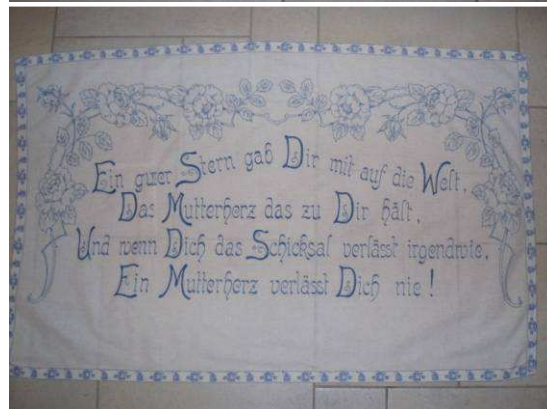 Ein guter Stern gab Dir mit auf die Welt,
Das Mutterherz das zu Dir hält,
Und wenn Dich das Schicksal verlässt irgendwie,
Ein Mutterherz verlässt Dich nie!